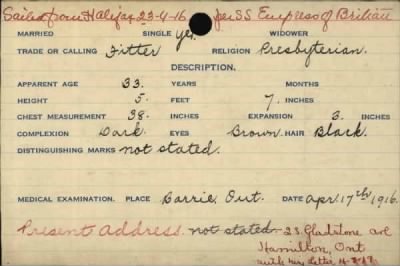 Sailed from Halifax 23-4-16 per SS Empress of Britain
MARRIED SINGLE yes. WIDOWER
TRADE OR CALLING Fitter RELIGION Presbyterian.
DESCRIPTION.
APPARENT AGE 33. YEARS MONTHS
HEIGHT 5. FEET 7. INCHES
CHEST MEASUREMENT 38. INCHES EXPANSION 3. INCHES
COMPLEXION Dark. EYES Brown. HAIR Black.
DISTINGUISHING MARKS not stated.
MEDICAL EXAMINATION. PLACE Barrie, Ont. DATE Apr. 17th, 1916.
Present Address. not stated 23. Gladstone ave
Hamilton, Ont
letter